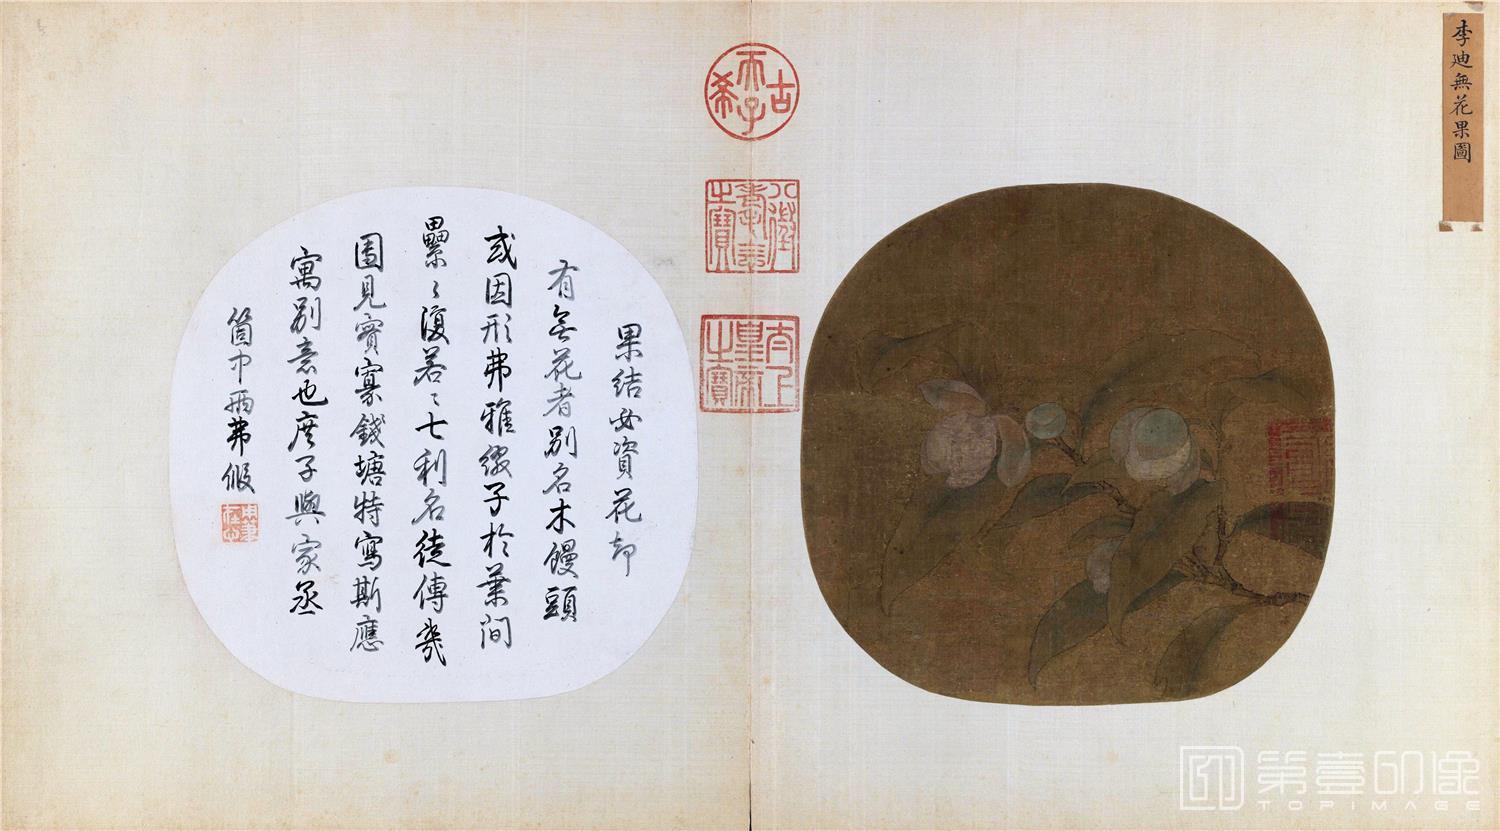 李迪無花果圖
古希天子
八徵耄念之寶
太上皇帝之寶
果結必資花却
有無花者別名木饅頭
或因形弗雅綴子於葉間
纍〻復若〻七利名徒傳我
園見實寡錢塘特寫斯應
寓別意也庶子與家丞
箇中兩弗假
第壹印像
TOPIMAGE